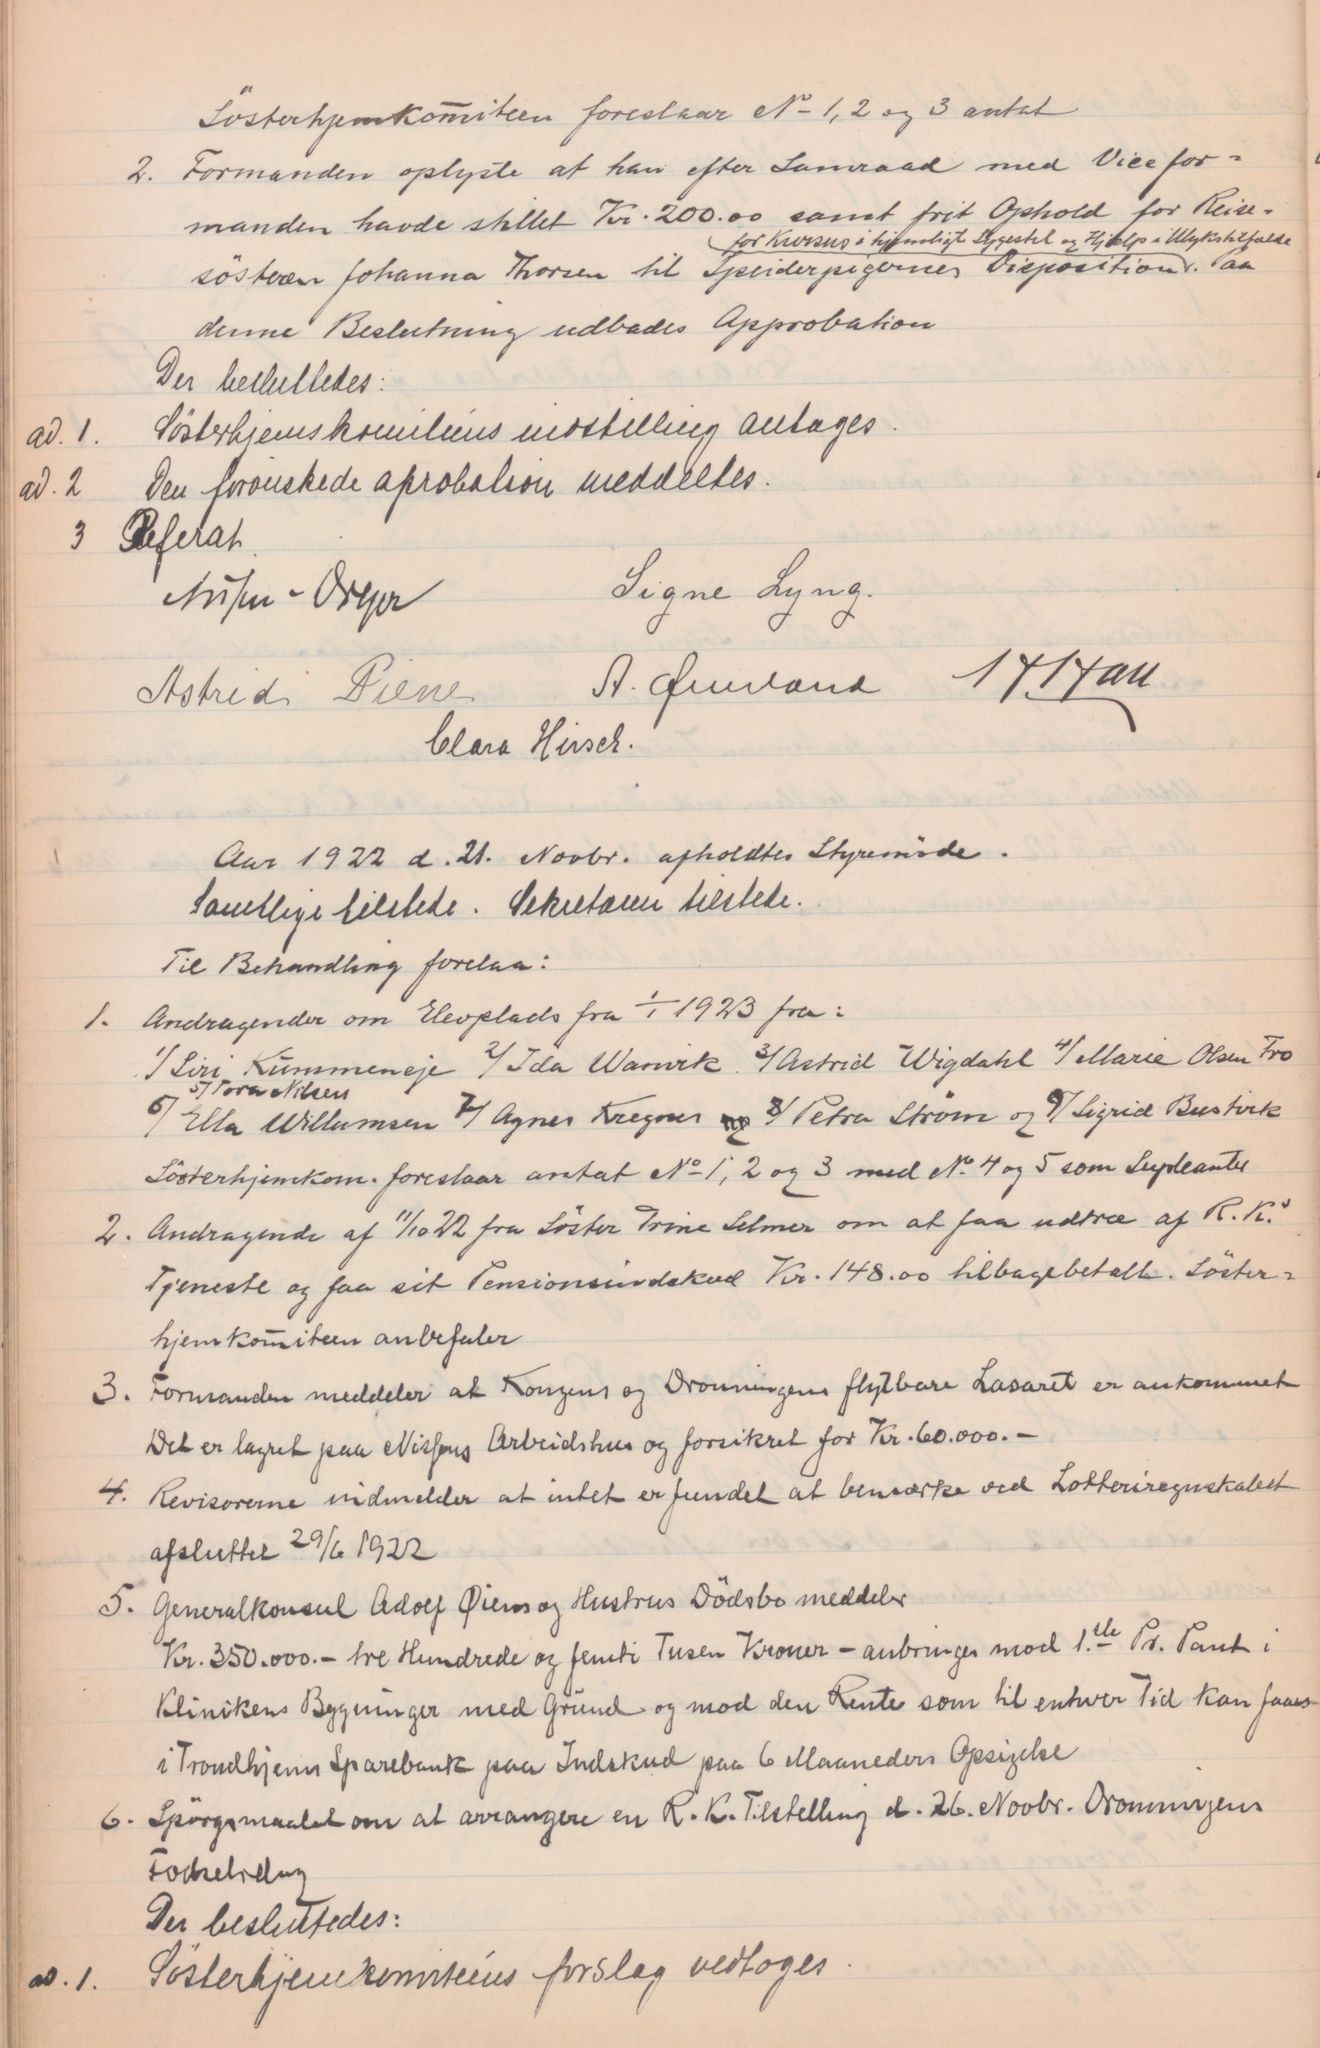 Søsterhjemkom̅iteen foreslaar No 1, 2 og 3 antat
2. Formanden oplyste at han efter Samraad med Vicefor=
manden havde stillet Kr. 200.00 samt frit Ophold for Reise=
for Kursus i hjemligt Sygestel og Hjælp i Ulykstilfælde
søsteren Johanna Thorsen til Speiderpigernes Disposition. Paa
denne Beslutning udbades Approbation
Der besluttedes:
ad. 1. Søsterhjemskomiteens indstilling antages.
ad. 2 Den forønskede aprobation meddeltes.
3 Referat
Signe Lyng.
Astrid Piene A.
Clara Hirsch.
Aar 1922 d. 21. Novbr. afholdtes Styremøde.
Samtlige tilstede. Sekretæren tilstede.
Til Behandling forelaa:
1. Andragender om Elevplads fra 1/1 1923 fra:
1/ Siri Kummeneje 2/ Ida Warvik 3/ Astrid Wigdahl 4/ Marie Olsen Fro
5/ Tora Nilsen
6/ Ella Willumsen 7/ Agnes Kregnes og 8/ Petra Strøm og 9/ Sigrid Bustvik
Søsterhjemkom. foreslaar antat No 1, 2 og 3 med No. 4 og 5 som Supleanter
2. Andragende af 11/10 22 fra Søster Trine Selmer om at faa udtræ af R.K.s
Tjeneste og faa sit Pensionsindskud Kr. 148.00 tilbagebetalt. Søster=
hjemkom̅iteen anbefaler
3. Formanden meddeler at Kongens og Dronningens flytbare Lasaret er ankommet
Det er lagret paa Nissens Arbeidshus og forsikret for Kr. 60.000.-
4. Revisorerne indmelder at intet er fundet at bemærke ved Lotteriregnskabet
afsluttet 29/6 1922
5. Generalkonsul Adolf Øiens og Hustrus Dødsbo meddeler
Kr. 350.000.- tre Hundrede og femti Tusen Kroner - anbringes mod 1.ste Pr. Pant i
Klinikens Bygninger med Grund og mod den Rente som til enhver Tid kan faaes
i Trondhjems Sparebank paa Indskud paa 6 Maaneders Opsigelse
6. Spørgsmaalet om at arrangere en R.K. Tilstelling d. 26. Novbr. Dronningens
Fødselsdag
Der besluttedes:
ad. 1. Søsterhjemkomiteens forslag vedtoges.